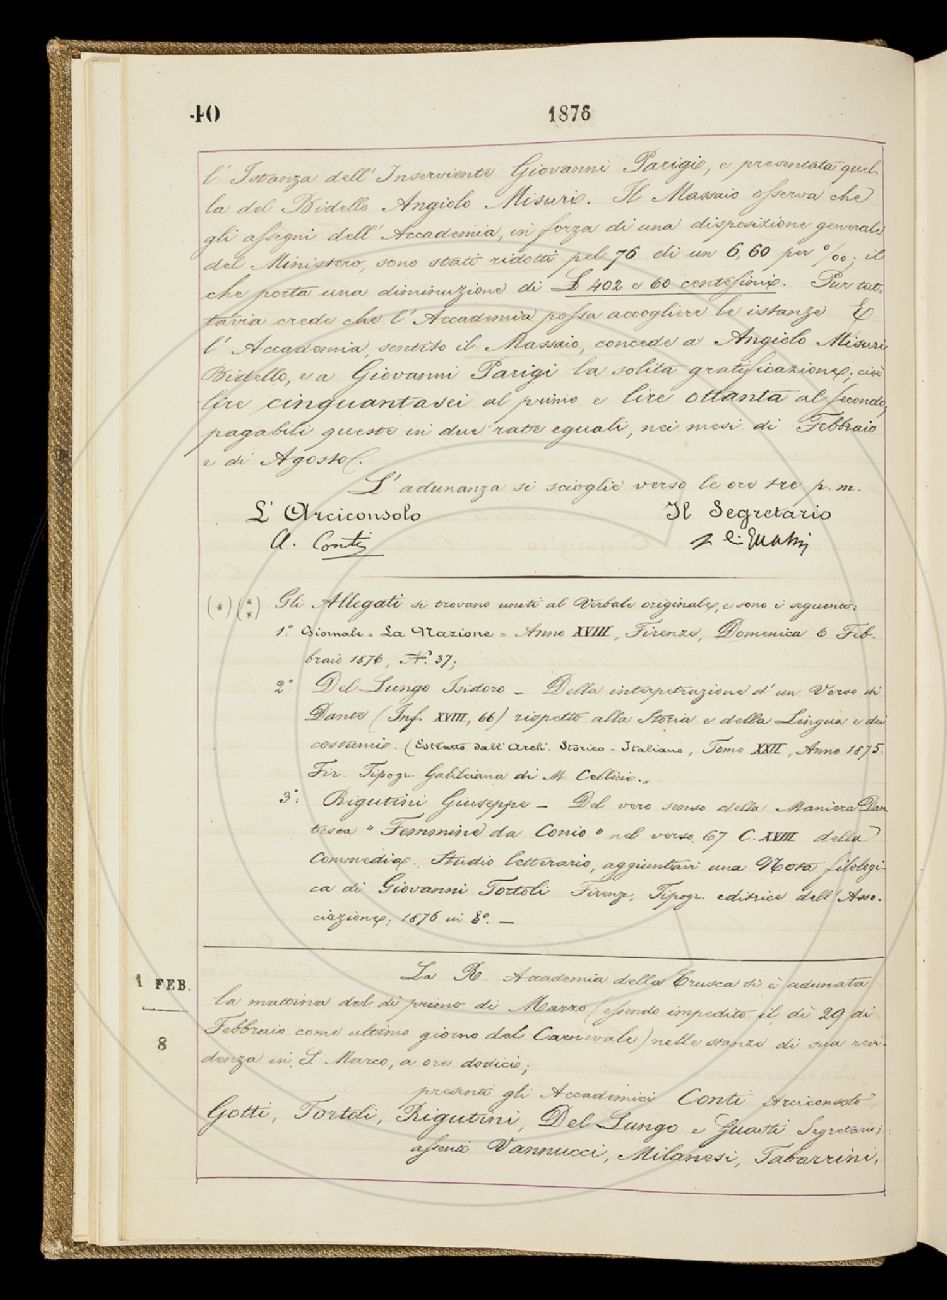 40
1876
l'Istanza dell'Inserviente Giovanni Parigi, e presentata quel-
la del Bidello Angiolo Misuri. Il Massaio osserva che
gli assegni dell'Accademia, in forza di una disposizione generale
del Ministero, sono stati ridotti pel 76 di un 6,60 per %; il
che porta una diminuzione di £ 402 e 60 centesimi. Pur tut-
tavia crede che l'Accademia possa accogliere le istanze. E
l'Accademia, sentito il Massaio, concede a Angiolo Misuri
Bidello, e a Giovanni Parigi la solita gratificazione, cioè
lire cinquantasei al primo e lire ottanta al secondo,
pagabili queste in due rate eguali, nei mesi di Febbraio
e di Agosto.
L'adunanza si scioglie verso le ore tre p. m.
L'Arciconsolo
Il Segretario
A. Conti
(*) (**) Gli Allegati si trovano uniti al Verbale originale, e sono i seguenti:
1.° Giornale = La Nazione = Anno XVIII, Firenze, Domenica 6 Feb-
braio 1876, N.° 37;
2.° Del Lungo Isidoro — Della interpetrazione d'un Verso di
Dante (Inf. XVIII, 66) rispetto alla Storia e della Lingua e dei
costumi. (Estratto dall'Arch. Storico-Italiano, Tomo XXII, Anno 1875.
Fir. Tipogr. Galileiana di M. Cellini.
3.° Rigutini Giuseppe — Del vero senso della Maniera Dan
tesca "Femmine da Conio" nel verso 67 C. XVIII della
Commedia. Studio letterario, aggiuntavi una Nota filologi-
ca di Giovanni Tortoli Firenze, Tipogr. editrice dell'Asso-
ciazione, 1876 in 8.° —
1 FEB.
8
La R. Accademia della Crusca si è adunata
la mattina del dì primo di Marzo (essendo impedito il dì 29 di
Febbraio come ultimo giorno del Carnevale) nelle stanze di sua resi-
denza in S. Marco, a ore dodici;
presenti gli Accademici Conti Arciconsolo,
Gotti, Tortoli, Rigutini, Del Lungo e Guasti Segretario;
assenti Vannucci, Milanesi, Tabarrini,